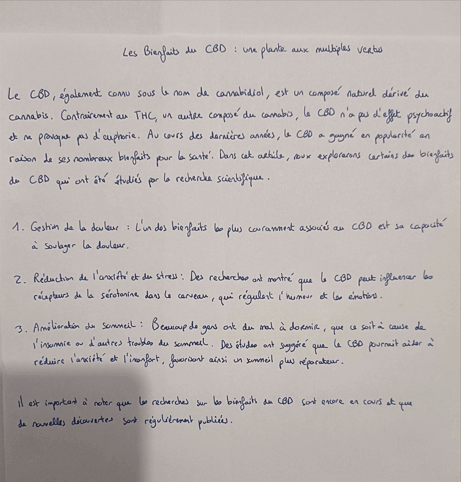 Les Bienfaits du CBD : une plante aux multiples vertus
Le CBD, également connu sous le nom de cannabidiol, est un composé naturel dérivé du
cannabis. Contrairement au THC, un autre composé du cannabis, le CBD n'a pas d'effet psychoactif
et ne provoque pas d'euphorie. Au cours des dernières années, le CBD a gagné en popularité en
raison de ses nombreux bienfaits pour la santé. Dans cet article, nous explorerons certains des bienfaits
du CBD qui ont été étudiés par la recherche scientifique.
1. Gestion de la douleur : L'un des bienfaits les plus couramment associés au CBD est sa capacité
à soulager la douleur.
2. Réduction de l'anxiété et du stress : Des recherches ont montré que le CBD peut influencer les
récepteurs de la sérotonine dans le cerveau, qui régulent l'humeur et les émotions.
3. Amélioration du sommeil : Beaucoup de gens ont du mal à dormir, que ce soit à cause de
l'insomnie ou d'autres troubles du sommeil. Des études ont suggéré que le CBD pourrait aider à
réduire l'anxiété et l'inconfort, favorisant ainsi un sommeil plus réparateur.
Il est important à noter que les recherches sur les bienfaits du CBD sont encore en cours et que
de nouvelles découvertes sont régulièrement publiées.